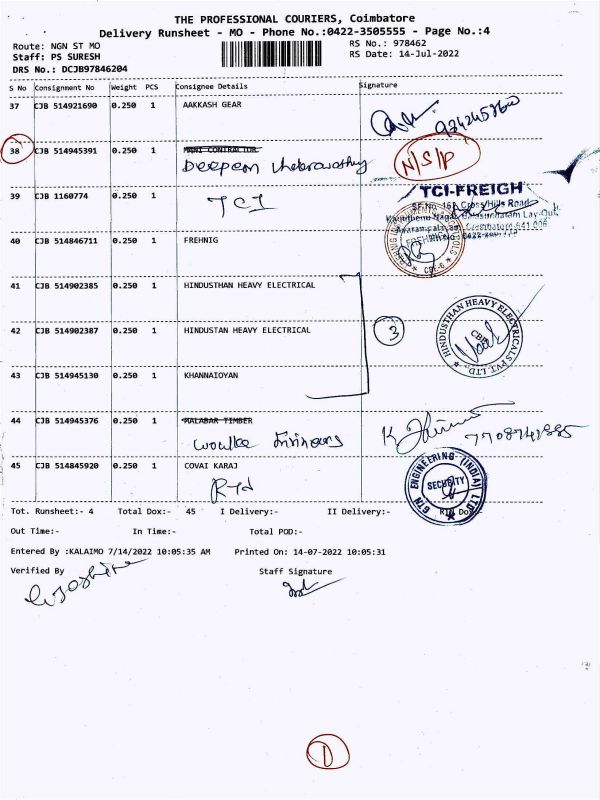 THE PROFESSIONAL COURIERS, Coimbatore
Delivery Runsheet - MO - Phone No.:0422-3505555 - Page No.:4
Route: NGN ST MO RS No.: 978462
Staff: PS SURESH RS Date: 14-Jul-2022
DRS No.: DCJB97846204
S No Consignment No Weight PCS Consignee Details Signature
37 CJB 514921690 0.250 1 AAKKASH GEAR
38 CJB 514945391 0.250 1 MANI CONTRACTOR
Deepam N/S/P
39 CJB 1160774 0.250 1 TCI
TCI-FREIGH
40 CJB 514846711 0.250 1 FREHNIG
41 CJB 514902385 0.250 1 HINDUSTHAN HEAVY ELECTRICAL
42 CJB 514902387 0.250 1 HINDUSTAN HEAVY ELECTRICAL 3
HINDUSTHAN HEAVY ELECTRICALS PVT LTD. CBE
43 CJB 514945130 0.250 1 KHANNAIOYAN
44 CJB 514945376 0.250 1 MALABAR TIMBER
45 CJB 514845920 0.250 1 COVAI KARAJ
GTN ENGINEERING (INDIA) LTD SECURITY
Tot. Runsheet:- 4 Total Dox:- 45 I Delivery:- II Delivery:-
Out Time:- In Time:- Total POD:-
Entered By :KALAIMO 7/14/2022 10:05:35 AM Printed On: 14-07-2022 10:05:31
Verified By Staff Signature
1